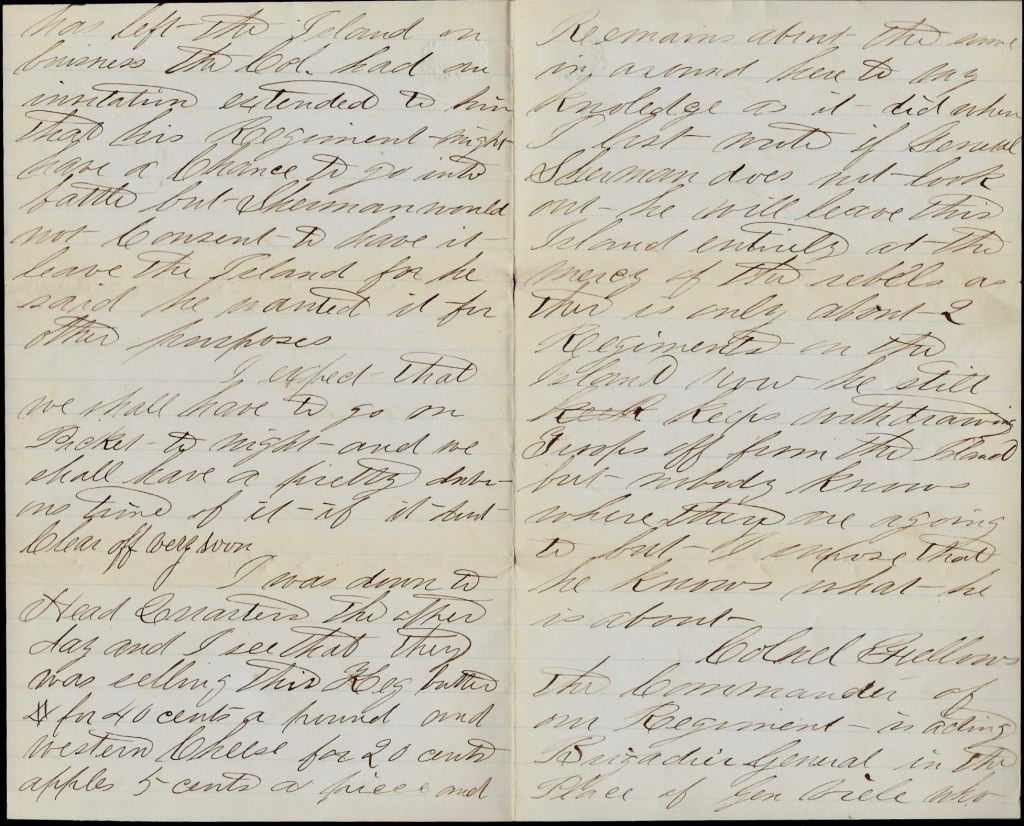 has left the Island on
buisness the Col. had an
invitation extended to him
that his Regiment might
have a Chance to go into
battle but Sherman would
not Consent to have it
leave the Island for he
said he wanted it for
other purposes
I expect that
we shall have to go on
Picket to night and we
shall have a pretty
time of it if it dont
Clear off very soon
I was down to
Head Quarters the other
day and I see that they
was selling this Keg butter
for 40 cents a pound and
western Cheese for 20 cents
apples 5 cents a piece and
Remains about the same
in around here to my
knoledge as it did when
I last wrote if General
Sherman does not look
out he will leave this
Island entirely at the
mercy of the rebels as
ther is only about 2
Regiments on the
Island now he still
keeps withdrawing
Troops off from the Island
but nobody knows
where they are agoing
to but I supose that
he knows what he
is about
Colnel Fellows
the Commander of
our Regiment is acting
Brigadier General in the
Place of Gen Viele who